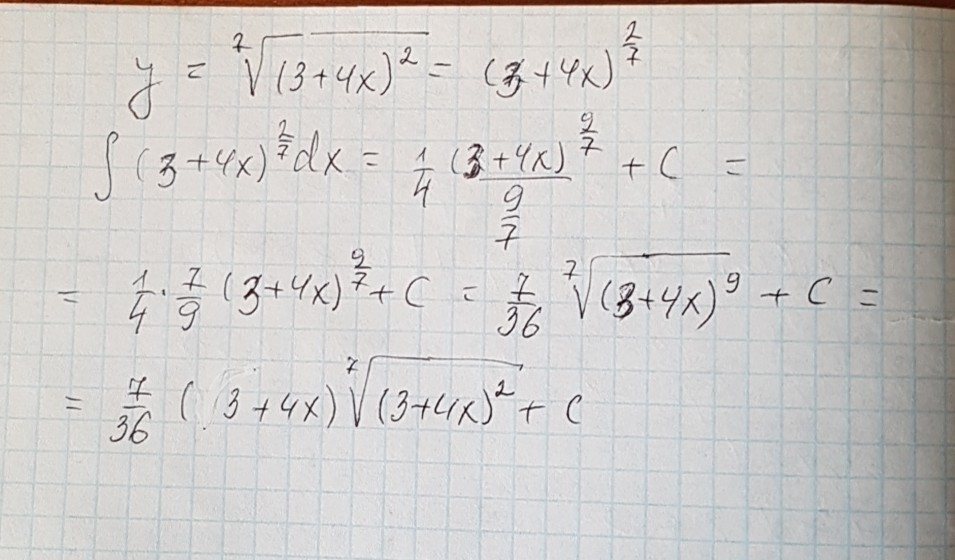 y = ⁷√(3+4x)² = (3+4x)^(2/7)
∫(3+4x)^(2/7)dx = 1/4 (3+4x)^(9/7)/(9/7) + C =
= 1/4 · 7/9 (3+4x)^(9/7) + C = 7/36 ⁷√(3+4x)⁹ + C =
= 7/36 (3+4x) ⁷√(3+4x)² + C